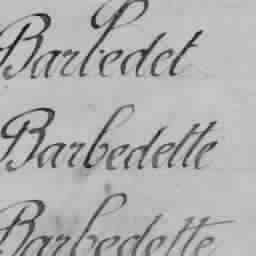 Barbedet
Barbedette
Barbedette